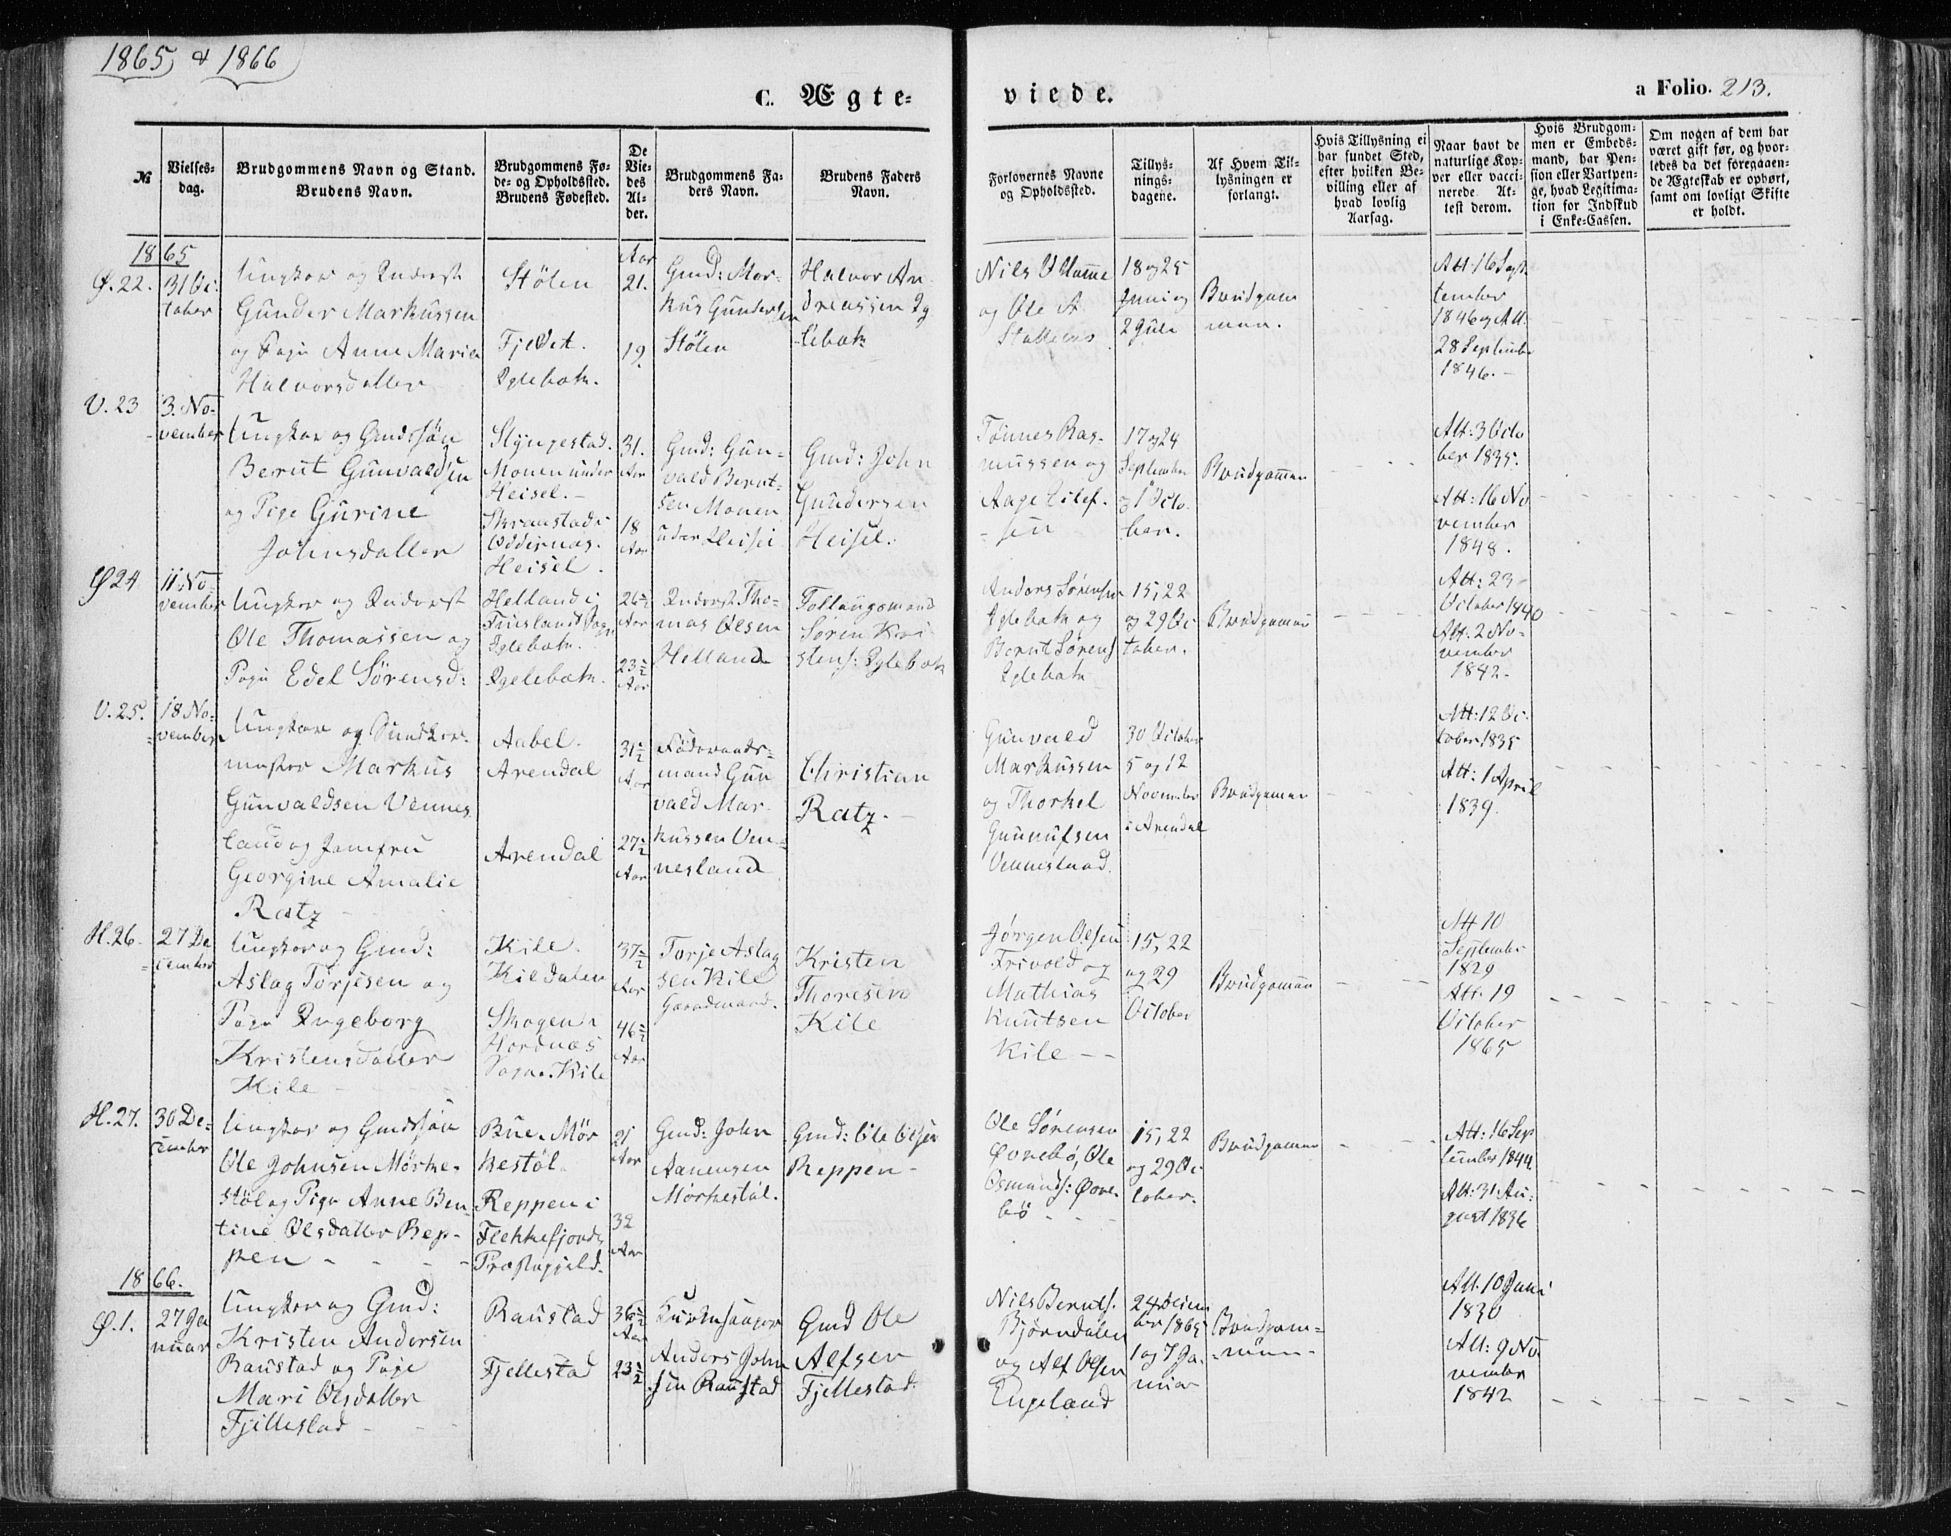 1865 & 1866
C. Ægte-
viede.
a Folio. 213.
№
Vielses-
dag.
Brudgommens Navn og Stand.
Brudens Navn.
Brudgommens Fø-
de- og Opholdssted.
Brudens Fødested.
De
Vie-
des
Al-
der.
Brudgommens Fa-
ders Navn.
Brudens Faders
Navn.
Forlovernes Navne
og Opholdssted.
Tillys-
nings-
dagene.
Af Hvem Til-
lysningen er
forlangt.
Hvis Tillysning ei
har fundet Sted,
efter hvilken Be-
villing eller af
hvad lovlig
Aarsag.
Naar havt de
naturlige Kop-
per eller vacci-
nerede. At-
test derom.
Hvis Brudgom-
men er Embeds-
mand, har Pen-
sion eller Vartpen-
ge, hvad Legitima-
tion for Indskud
i Enke-Cassen.
Om nogen af dem har
været gift før, og hvor-
ledes da det foregaaen-
de Ægteskab er ophørt,
samt om lovligt Skifte
er holdt.
1865
Ø. 22.
31 Oc-
tober
Ungkar og Inderst
Gunder Markussen
og Pige Anne Marie
Halvorsdatter
Stølen
Fjeldet
Iglebæk.
Aar
21.
19.
Gmd: Mar-
kus Gundersen
Stølen
Halvor An-
dreassen Ig-
lebæk
Nils
og Ole A.
18 og 25
Juni og
2 Juli
Brudgom
men.
Att: 16 Sep-
tember
1846 og Att.
28 September
1846.
V. 23
3. No-
vember
Ungkar og Gmdssøn
Berut Gunvaldsen
og Pige Gurine
Johnsdatter
Slyngestad.
Monen under
Heisel.
Skraustad i
Oddernæs.
Heisel.
31.
Aar
18
Aar
Gmd: Gun-
vald Berut-
sen Monen
under Heisel
Gmd: John
Gundersen
Heisel.
Tønnes Ras-
mussen og
Aage Tilef-
sen
17 og 24
September
og 1 Octo-
ber.
Brudgommen
Att: 3 Octo
ber 1835.
Att: 16 No
vember
1848.
Ø 24
11 No-
vember
Ungkar og Inderst
Ole Thomassen og
Pige Edel Sørensd:
Helland i
Finslands Sogn
Iglebæk.
Iglebæk.
26 ½
Aar
23 ½
Aar
Inderst Tho-
mas Olsen
Helland
Follaugsmand
Søren Kri-
stens: Iglebæk
Anders Sørensen
Iglebæk og
Berut Sørens
Iglebæk
15, 22
og 29 Oc-
tober.
Brudgommen
Att: 23
October 1840
Att: 2 No-
vember
1842.
V. 25.
18 No-
vember
Ungkar og
Markus
Gunvaldsen Vennes
land og Jomfru
Georgine Amalie
Ratz
Aabel.
Arendal
Arendal
31 ½
Aar
27 ½
Aar
Føderaads-
mand Gun
vald Mar-
kussen Ven-
nesland
Christian
Ratz.
Gunvald
Markussen
og Thorkel
Gunulfsen
Vennesland
30 October
5 og 12
November
i Arendal
Brudgommen
Att: 12 Oc-
tober 1835
Att: 1 April
1839.
H. 26.
27 De
cember
Ungkar og Gmd:
Aslag Torjesen og
Pige Ingeborg
Kristensdatter
Kile
Kile.
Kiledalen
Skogen i
Hordnæs
Sogn. Kile
37 ½
Aar
46 ½
Aar
Torje Aslag
sen Kile
Gaardmand.
Kristen
Thoresen
Kile
Jørgen Olsen
Frivold og
Mathias
Knutsen
Kile
15, 22
og 29
October
Brudgommen
Att 10
September
1829
Att. 19
October
1865
H. 27.
30 De-
cember
Ungkar og Gmdssøn
Ole Johnsen Mørke-
støl og Pige Anne Ben-
tine Olsdatter Rep-
pen
Bue. Mør
kestøl.
Reppen i
Flekkefjords
Præstegjeld.
21
Aar
32
Aar
Gmd: John
Aanensen
Mørkestøl.
Gmd: Ole Olsen
Reppen
Ole Sørensen
Øvrebø, Ole
Osmunds: Øvre-
bø
15, 22
og 29 Oc-
tober.
Brudgommen
Att: 16 Sep
tember 1844
Att: 31 Au-
gust 1836
1866.
Ø. 1.
27 Ja
nuar
Ungkar og Gmd:
Kristen Andersen
Raustad og Pige
Mari Olsdatter
Fjellestad
Raustad
Fjellestad
36 ½
Aar
23 ½
Kirkesanger
Anders John
sen Raustad
Gmd Ole
Alfsen
Fjellestad
Nils Beruts.
Bjørndalen
og Alf Olsen
Engeland
24 Decem
ber 1865
1 og 7 Ja-
nuar
Brudgom-
men
Att. 10 Juni
1830
Att: 9 No
vember
1842